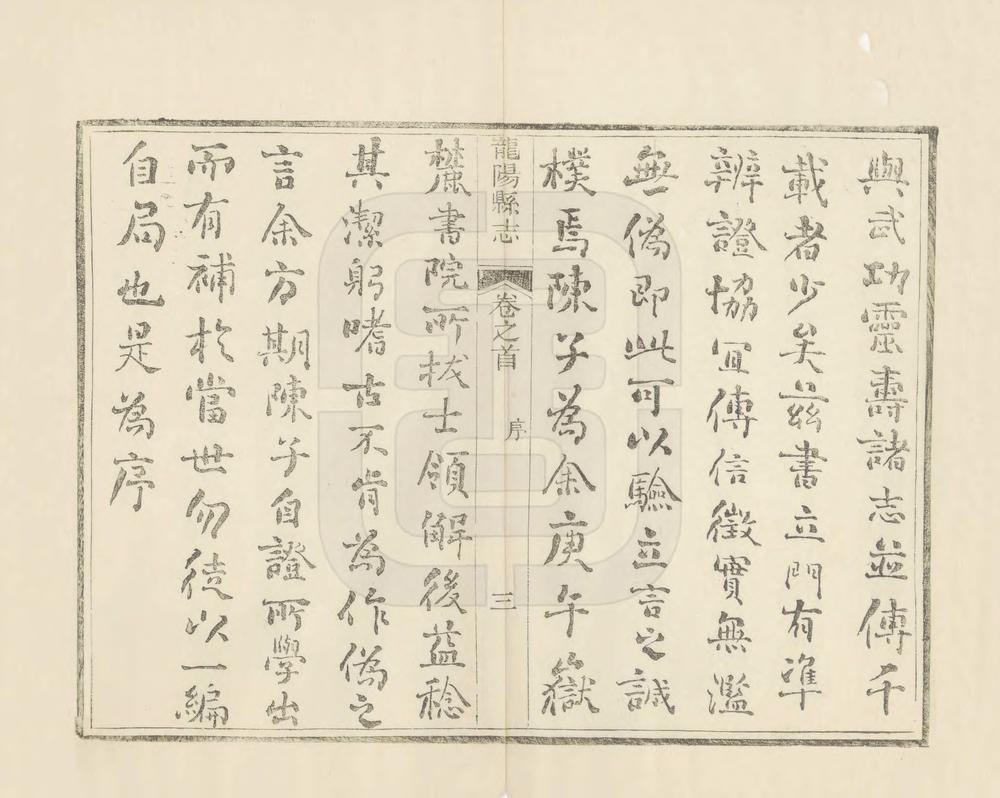 與武功靈壽諸志並傳千
載者少矣茲書立門有準
辨證協宜傳信徵實無濫
無偽即此可以驗立言之誠
樸焉陳子為余庚午嶽
龍陽縣志 卷之首 序 三
麓書院所拔士領解後益稔
其潔躬嗜古不肯為作偽之
言余方期陳子自證所學出
而有補於當世勿徒以一編
自局也是為序